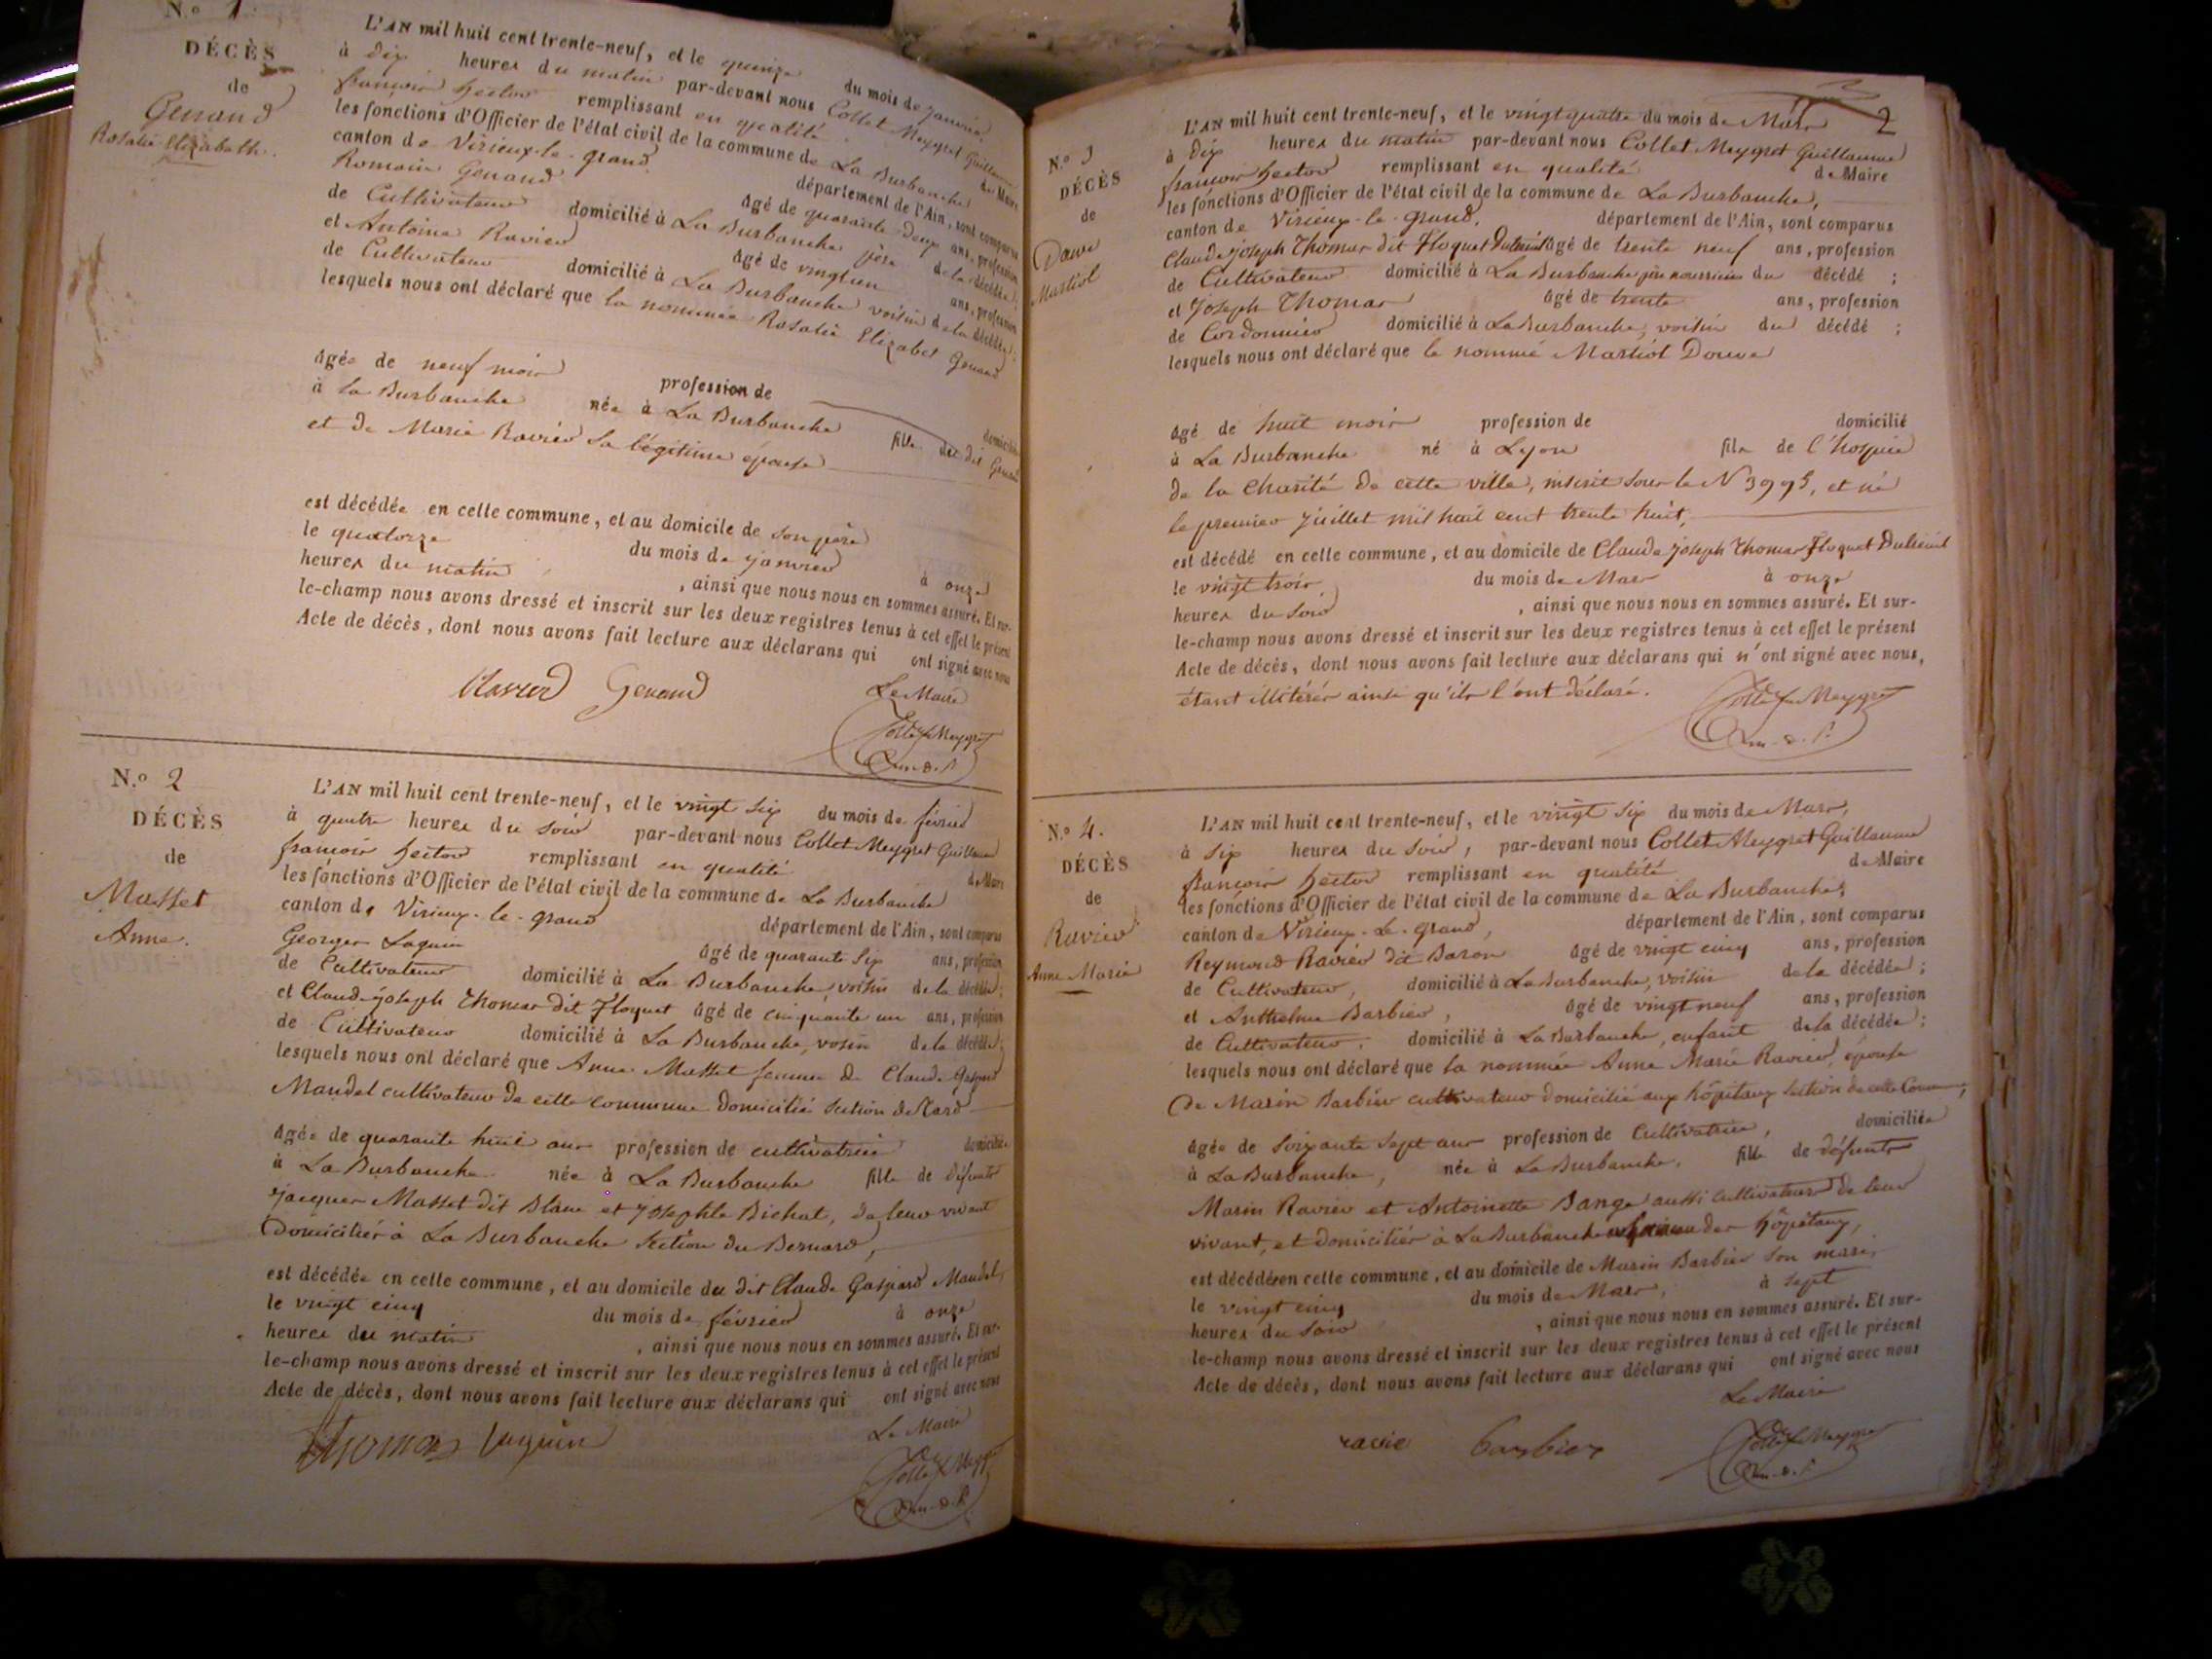 N.o 1.
DÉCÈS
de
Genand
Rosalie Elizabeth.
L'AN mil huit cent trente-neuf, et le quinze du mois de janvier
à dix heures du matin par-devant nous Collet Meygret Guillaume
françois hector remplissant en qualité de Maire
les fonctions d'Officier de l'état civil de la commune de La Burbanche
canton de Virieux-le-grand département de l'Ain, sont comparus
Romain Genand agé de quarante deux ans, profession
de Cultivateur domicilié à La Burbanche père de la décédée;
et Antoine Ravier agé de vingt un ans, profession
de Cultivateur domicilié à La Burbanche voisin de la décédée;
lesquels nous ont déclaré que la nommée Rosalie Elizabet Genand
agée de neuf mois profession de domiciliée
à la Burbanche née à La Burbanche fille du dit Genand
et de Marie Ravier sa légitime épouse
est décédée en celle commune, et au domicile de son père
le quatorze du mois de janvier à onze
heures du matin, ainsi que nous nous en sommes assuré. Et sur-
le-champ nous avons dressé et inscrit sur les deux registres tenus à cet effet le présent
Acte de décès, dont nous avons fait lecture aux déclarans qui ont signé avec nous
Ravier Genand Le Maire
Collet Meygret
N.o 2
DÉCÈS
de
Masset
Anne.
L'AN mil huit cent trente-neuf, et le vingt six du mois de février
à quatre heures du soir par-devant nous Collet Meygret Guillaume
françois hector remplissant en qualité de Maire
les fonctions d'Officier de l'état civil de la commune de La Burbanche
canton de Virieux-le-grand département de l'Ain, sont comparus
Georges Laguin agé de quarante six ans, profession
de Cultivateur domicilié à La Burbanche, voisin de la décédée;
et Claude joseph Thomas dit Floquet agé de cinquante un ans, profession
de Cultivateur domicilié à La Burbanche, voisin de la décédée;
lesquels nous ont déclaré que Anne Masset femme de Claude Gaspard
Mandel cultivateur de cette commune domicilié section de
agée de quarante huit ans profession de cultivatrice domiciliée
à La Burbanche née à La Burbanche fille de défunts
jacques Masset dit Blanc et josephte Bichat, de leur vivant
Domiciliés à La Burbanche section du Bernard,
est décédée en celle commune, et au domicile du dit Claude Gaspard Mandel,
le vingt cinq du mois de février à onze
heures du matin, ainsi que nous nous en sommes assuré. Et sur-
le-champ nous avons dressé et inscrit sur les deux registres tenus à cet effet le présent
Acte de décès, dont nous avons fait lecture aux déclarans qui ont signé avec nous
Thomas Laguin Le Maire
Collet Meygret
2
N.o 3
DÉCÈS
de
Douve
Martiol
L'AN mil huit cent trente-neuf, et le vingt quatre du mois de Mars
à dix heures du matin par-devant nous Collet Meygret Guillaume
françois hector remplissant en qualité de Maire
les fonctions d'Officier de l'état civil de la commune de La Burbanche,
canton de Virieux-le-grand, département de l'Ain, sont comparus
Claude joseph Thomas dit Floquet Dutreuil agé de trente neuf ans, profession
de Cultivateur domicilié à La Burbanche père nourricier du décédé;
et Joseph Thomas agé de trente ans, profession
de Cordonnier domicilié à La Burbanche, voisin du décédé;
lesquels nous ont déclaré que le nommé Martiol Douve
agé de huit mois profession de domicilié
à La Burbanche né à Lyon fils de l'hospice
de la Charité de cette ville, inscrit sous le N 3995, et né
le premier juillet mil huit cent trente huit,
est décédé en celle commune, et au domicile de Claude joseph Thomas Floquet Dutreuil
le vingt trois du mois de Mars à onze
heures du soir, ainsi que nous nous en sommes assuré. Et sur-
le-champ nous avons dressé et inscrit sur les deux registres tenus à cet effet le présent
Acte de décès, dont nous avons fait lecture aux déclarans qui n'ont signé avec nous,
étant illitérés ainsi qu'ils l'ont déclaré.
Collet Meygret
N.o 4.
DÉCÈS
de
Ravier
Anne Marie
L'AN mil huit cent trente-neuf, et le vingt six du mois de Mars,
à six heures du soir, par-devant nous Collet Meygret Guillaume
françois hector remplissant en qualité de Maire
les fonctions d'Officier de l'état civil de la commune de La Burbanche,
canton de Virieux-Le-grand, département de l'Ain, sont comparus
Reymond Ravier dit Baron agé de vingt cinq ans, profession
de Cultivateur, domicilié à La Burbanche, voisin de la décédée;
et Anthelme Barbier, agé de vingt neuf ans, profession
de Cultivateur, domicilié à La Burbanche, enfant de la décédée;
lesquels nous ont déclaré que la nommée Anne Marie Ravier, épouse
de Marin Barbier cultivateur domicilié aux hôpitaux section de cette Commune,
agée de soixante sept ans profession de Cultivatrice, domiciliée
à La Burbanche, née à La Burbanche, fille de défunts
Marin Ravier et Antoinette Bange aussi cultivateurs de leur
vivant, et domiciliés à La Burbanche des hôpitaux,
est décédée en celle commune, et au domicile de Marin Barbier son mari,
le vingt cinq du mois de Mars, à sept
heures du soir, ainsi que nous nous en sommes assuré. Et sur-
le-champ nous avons dressé et inscrit sur les deux registres tenus à cet effet le présent
Acte de décès, dont nous avons fait lecture aux déclarans qui ont signé avec nous
Le Maire
ravie barbier Collet Meygret